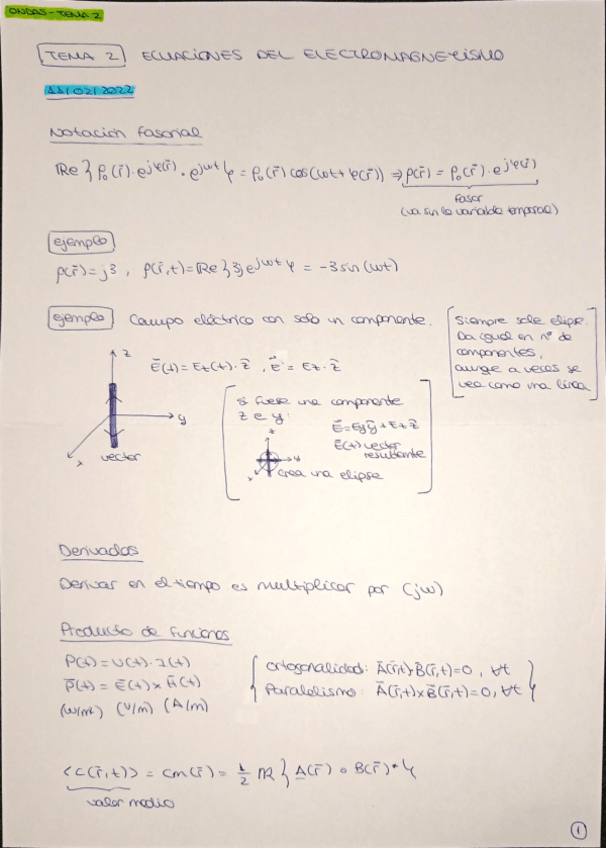 ONDAS - TEMA 2
TEMA 2 ECUACIONES DEL ELECTROMAGNETISMO
11/02/2022
Notación fasorial
Re { ρ₀(r̄)·e^{jφ(r̄)}·e^{jωt} } = ρ₀(r̄) cos(ωt + φ(r̄)) ⇒ ρ(r̄) = ρ₀(r̄)·e^{jφ(r̄)}
Fasor
(va sin la variable temporal)
ejemplo
ρ(r̄) = j3, ρ(r̄,t) = Re { 3j e^{jωt} } = -3 sin(ωt)
ejemplo Campo eléctrico con solo un componente.
Siempre sale elipse.
Da igual en nº de
componentes,
aunque a veces se
vea como una línea
z
y
x
vector
Ē(t) = Ez(t)·ẑ, ē = Ez·ẑ
si fuese una componente
z e y:
Ē = Eyŷ + Ezẑ
Ē(t) vector
resultante
z
y
x
crea una elipse
Derivadas
Derivar en el tiempo es multiplicar por (jω)
Producto de funciones
P(t) = U(t)·I(t)
P̄(t) = Ē(t) × H̄(t)
(W/m²) (V/m) (A/m)
Ortogonalidad: Ā(r̄,t)·B̄(r̄,t) = 0, ∀t
Paralelismo: Ā(r̄,t) × B̄(r̄,t) = 0, ∀t
<C(r̄,t)> = Cm(r̄) = 1/2 Re { A(r̄) ∘ B(r̄)* }
valor medio
1